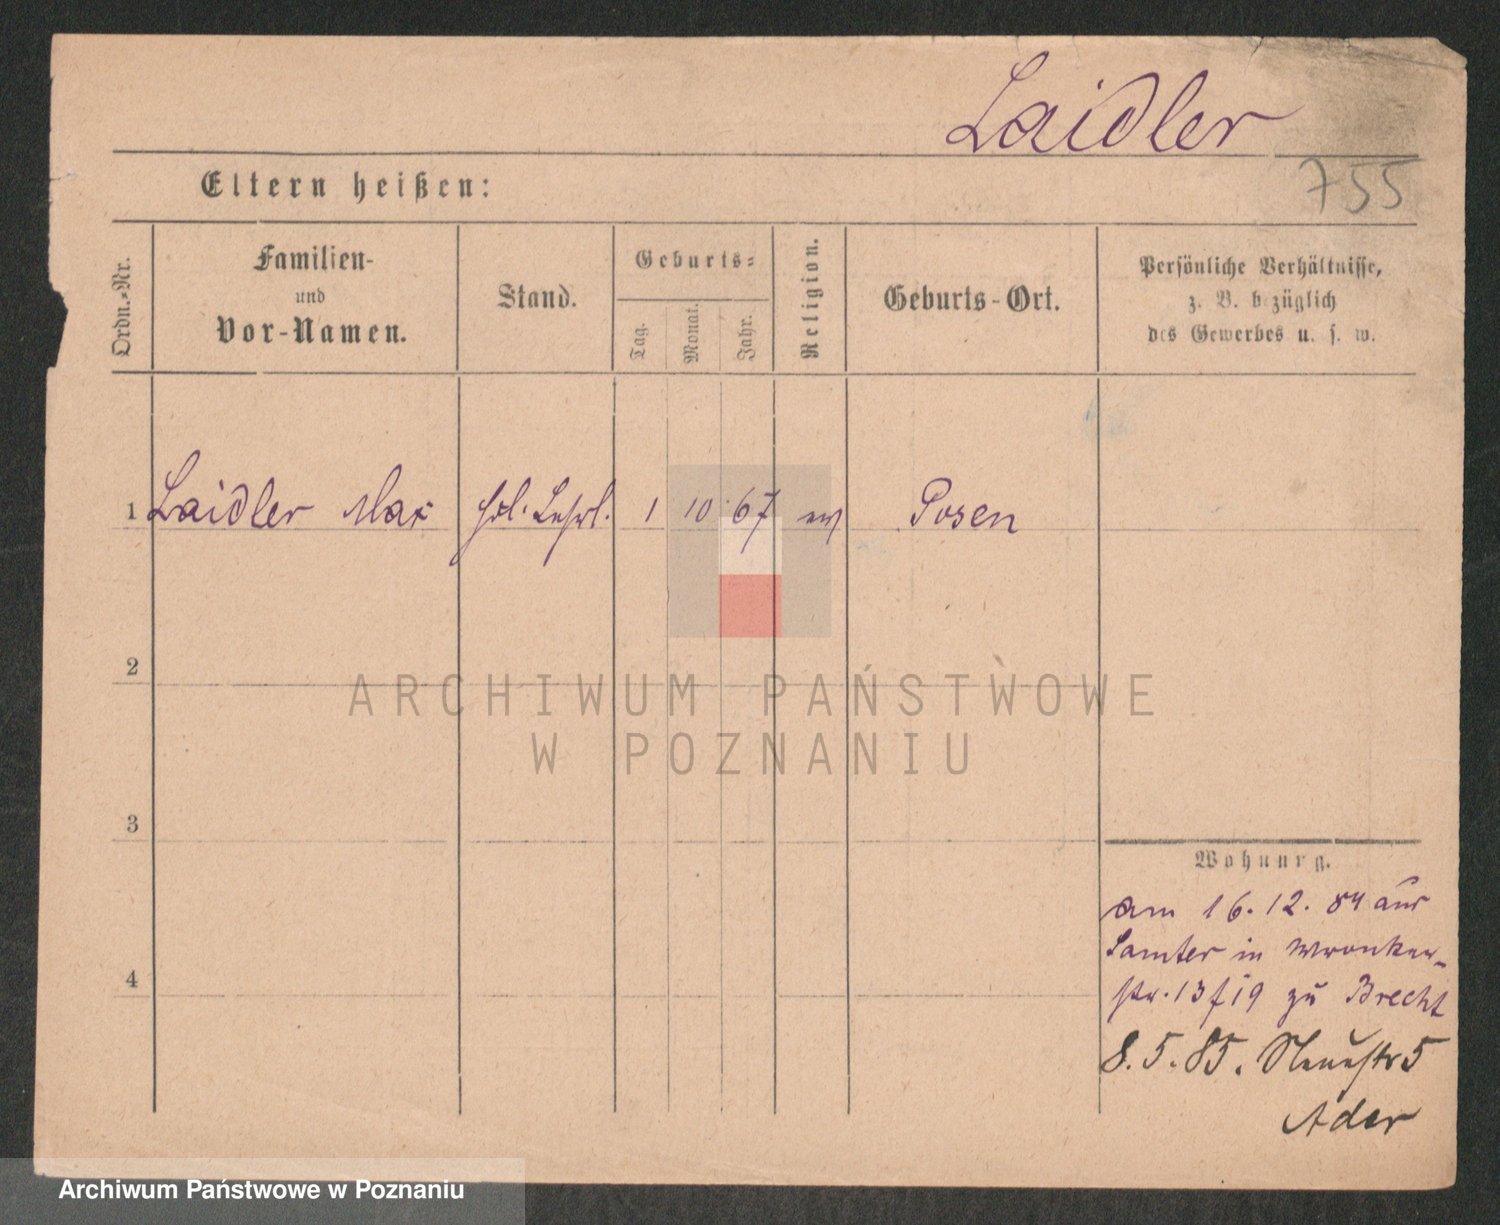 Laidler
755
Eltern heißen:
Ordn.-Nr.
Familien-
und
Vor-Namen.
Stand.
Geburts-
Tag.
Monat.
Jahr.
Religion.
Geburts-Ort.
Persönliche Verhältnisse,
z. B. bezüglich
des Gewerbes u. s. w.
1 Laidler Max Hdl. Lehrl. 1 10 67 ev Posen
2
ARCHIWUM PAŃSTWOWE
W POZNANIU
3
Wohnung.
am 16.12.84 aus
Samter in Wronker-
str. 13 f 19 zu Brecht
4
8.5.85. Neuestr 5
Ader
Archiwum Państwowe w Poznaniu